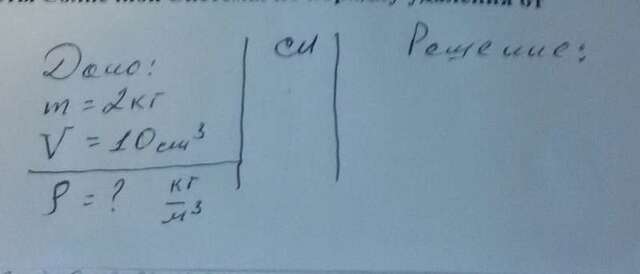 Дано:
m = 2кг
V = 10см³
ρ = ? кг/м³
СИ
Решение: